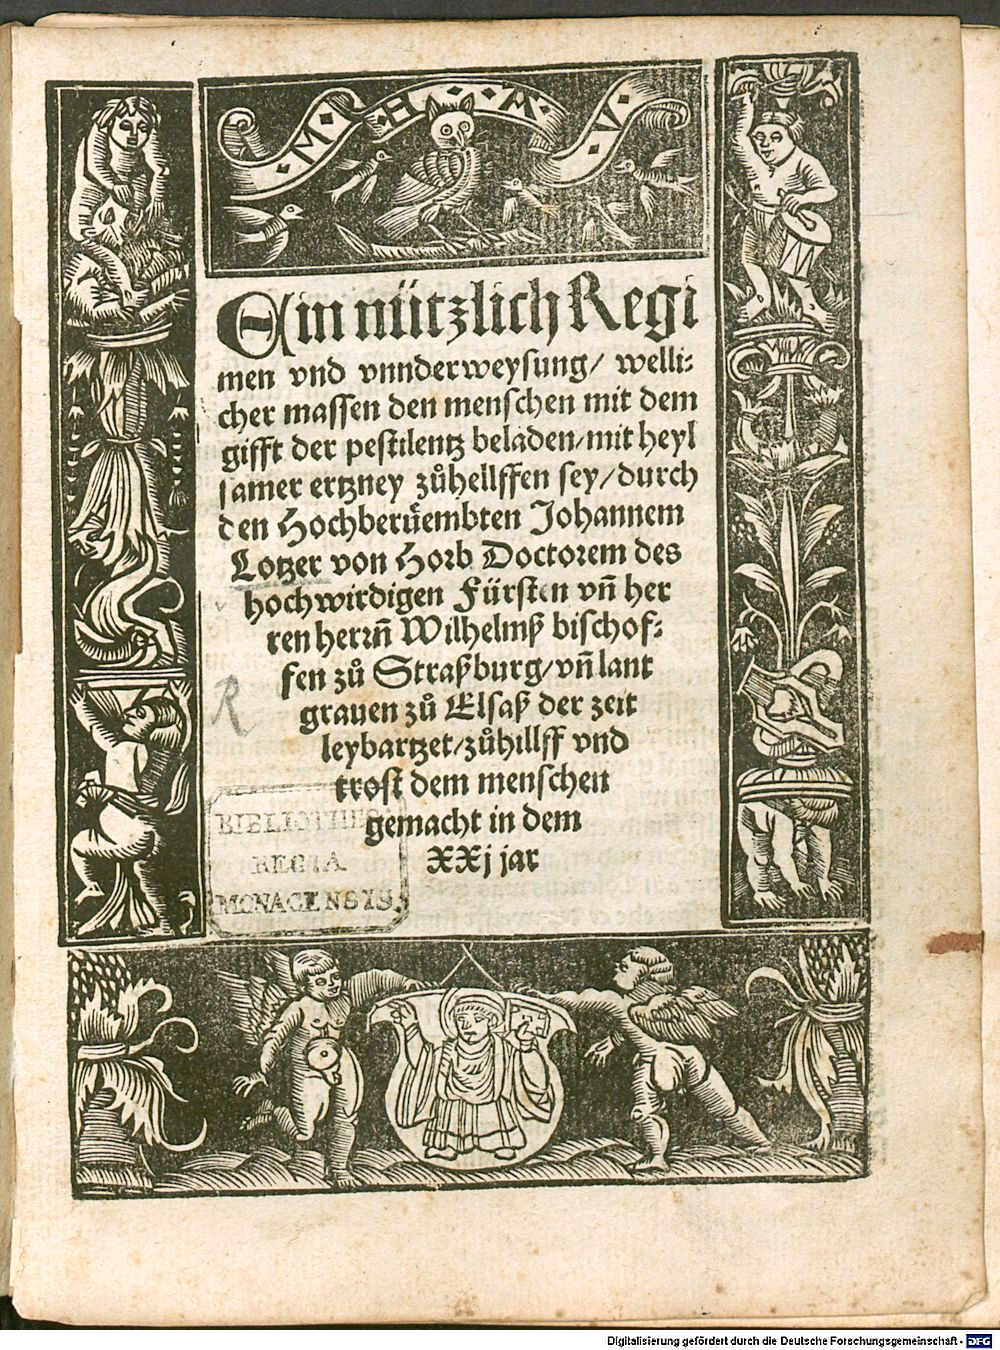 M · H · A · V ·
Ein nützlich Regi
men vnd vnnderweysung/ welli⸗
cher massen den menschen mit dem
gifft der pestilentz beladen/mit heyl
samer ertzney zůhellffen sey/durch
den Hochberuͤembten Johannem
Lotzer von Horb Doctorem des
hochwirdigen Fürsten vñ her
ren herrñ Wilhelmß bischof⸗
fen zů Straßburg/vñ lant
grauen zů Elsaß der zeit
leybartzet/zůhillff vnd
trost dem menschen
gemacht in dem
XXj jar
R
BIBLIOTHEC
REGIA
MONACENSIS
Digitalisierung gefördert durch die Deutsche Forschungsgemeinschaft - DFG